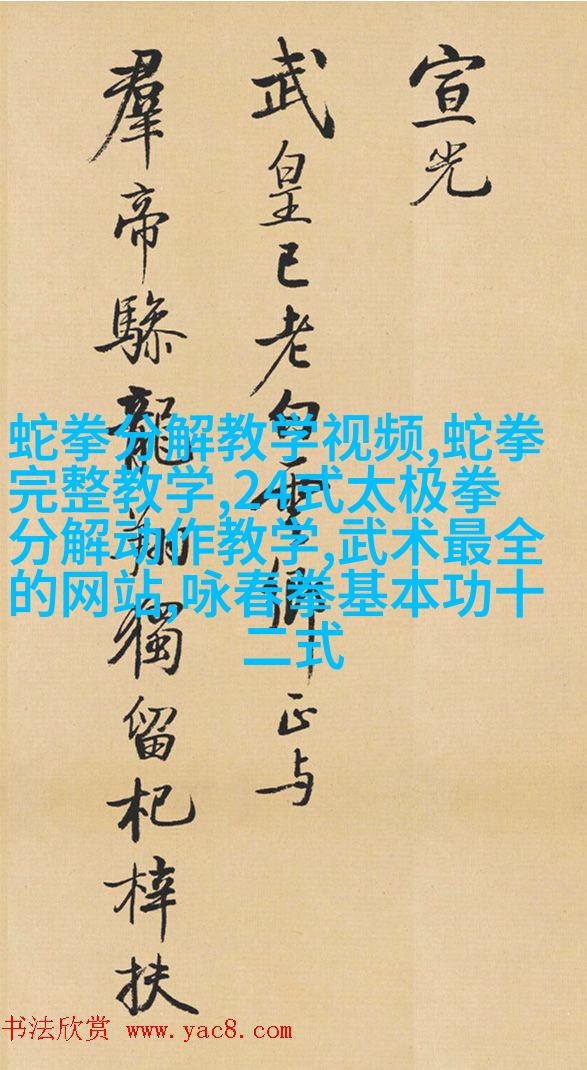 宣光
武皇已老白雲鄉正与
羣帝驂龍翔獨留杞梓扶
蛇拳分解教学视频,蛇拳
完整教学,24式太极拳
分解动作教学,武术最全
的网站,咏春拳基本功十
二式
书法欣赏 www.yac8.com